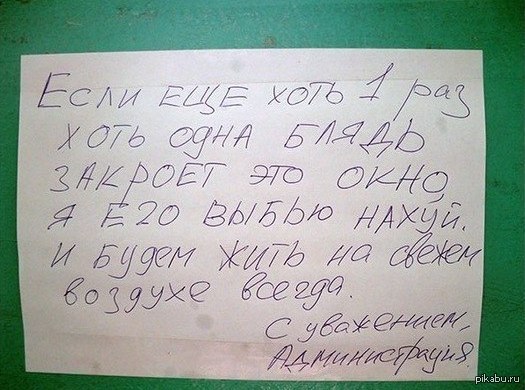 Если еще хоть 1 раз
хоть одна блядь
закроет это окно,
я его выбью нахуй.
и будем жить на свежем
воздухе всегда.
С уважением,
Администрация.
pikabu.ru